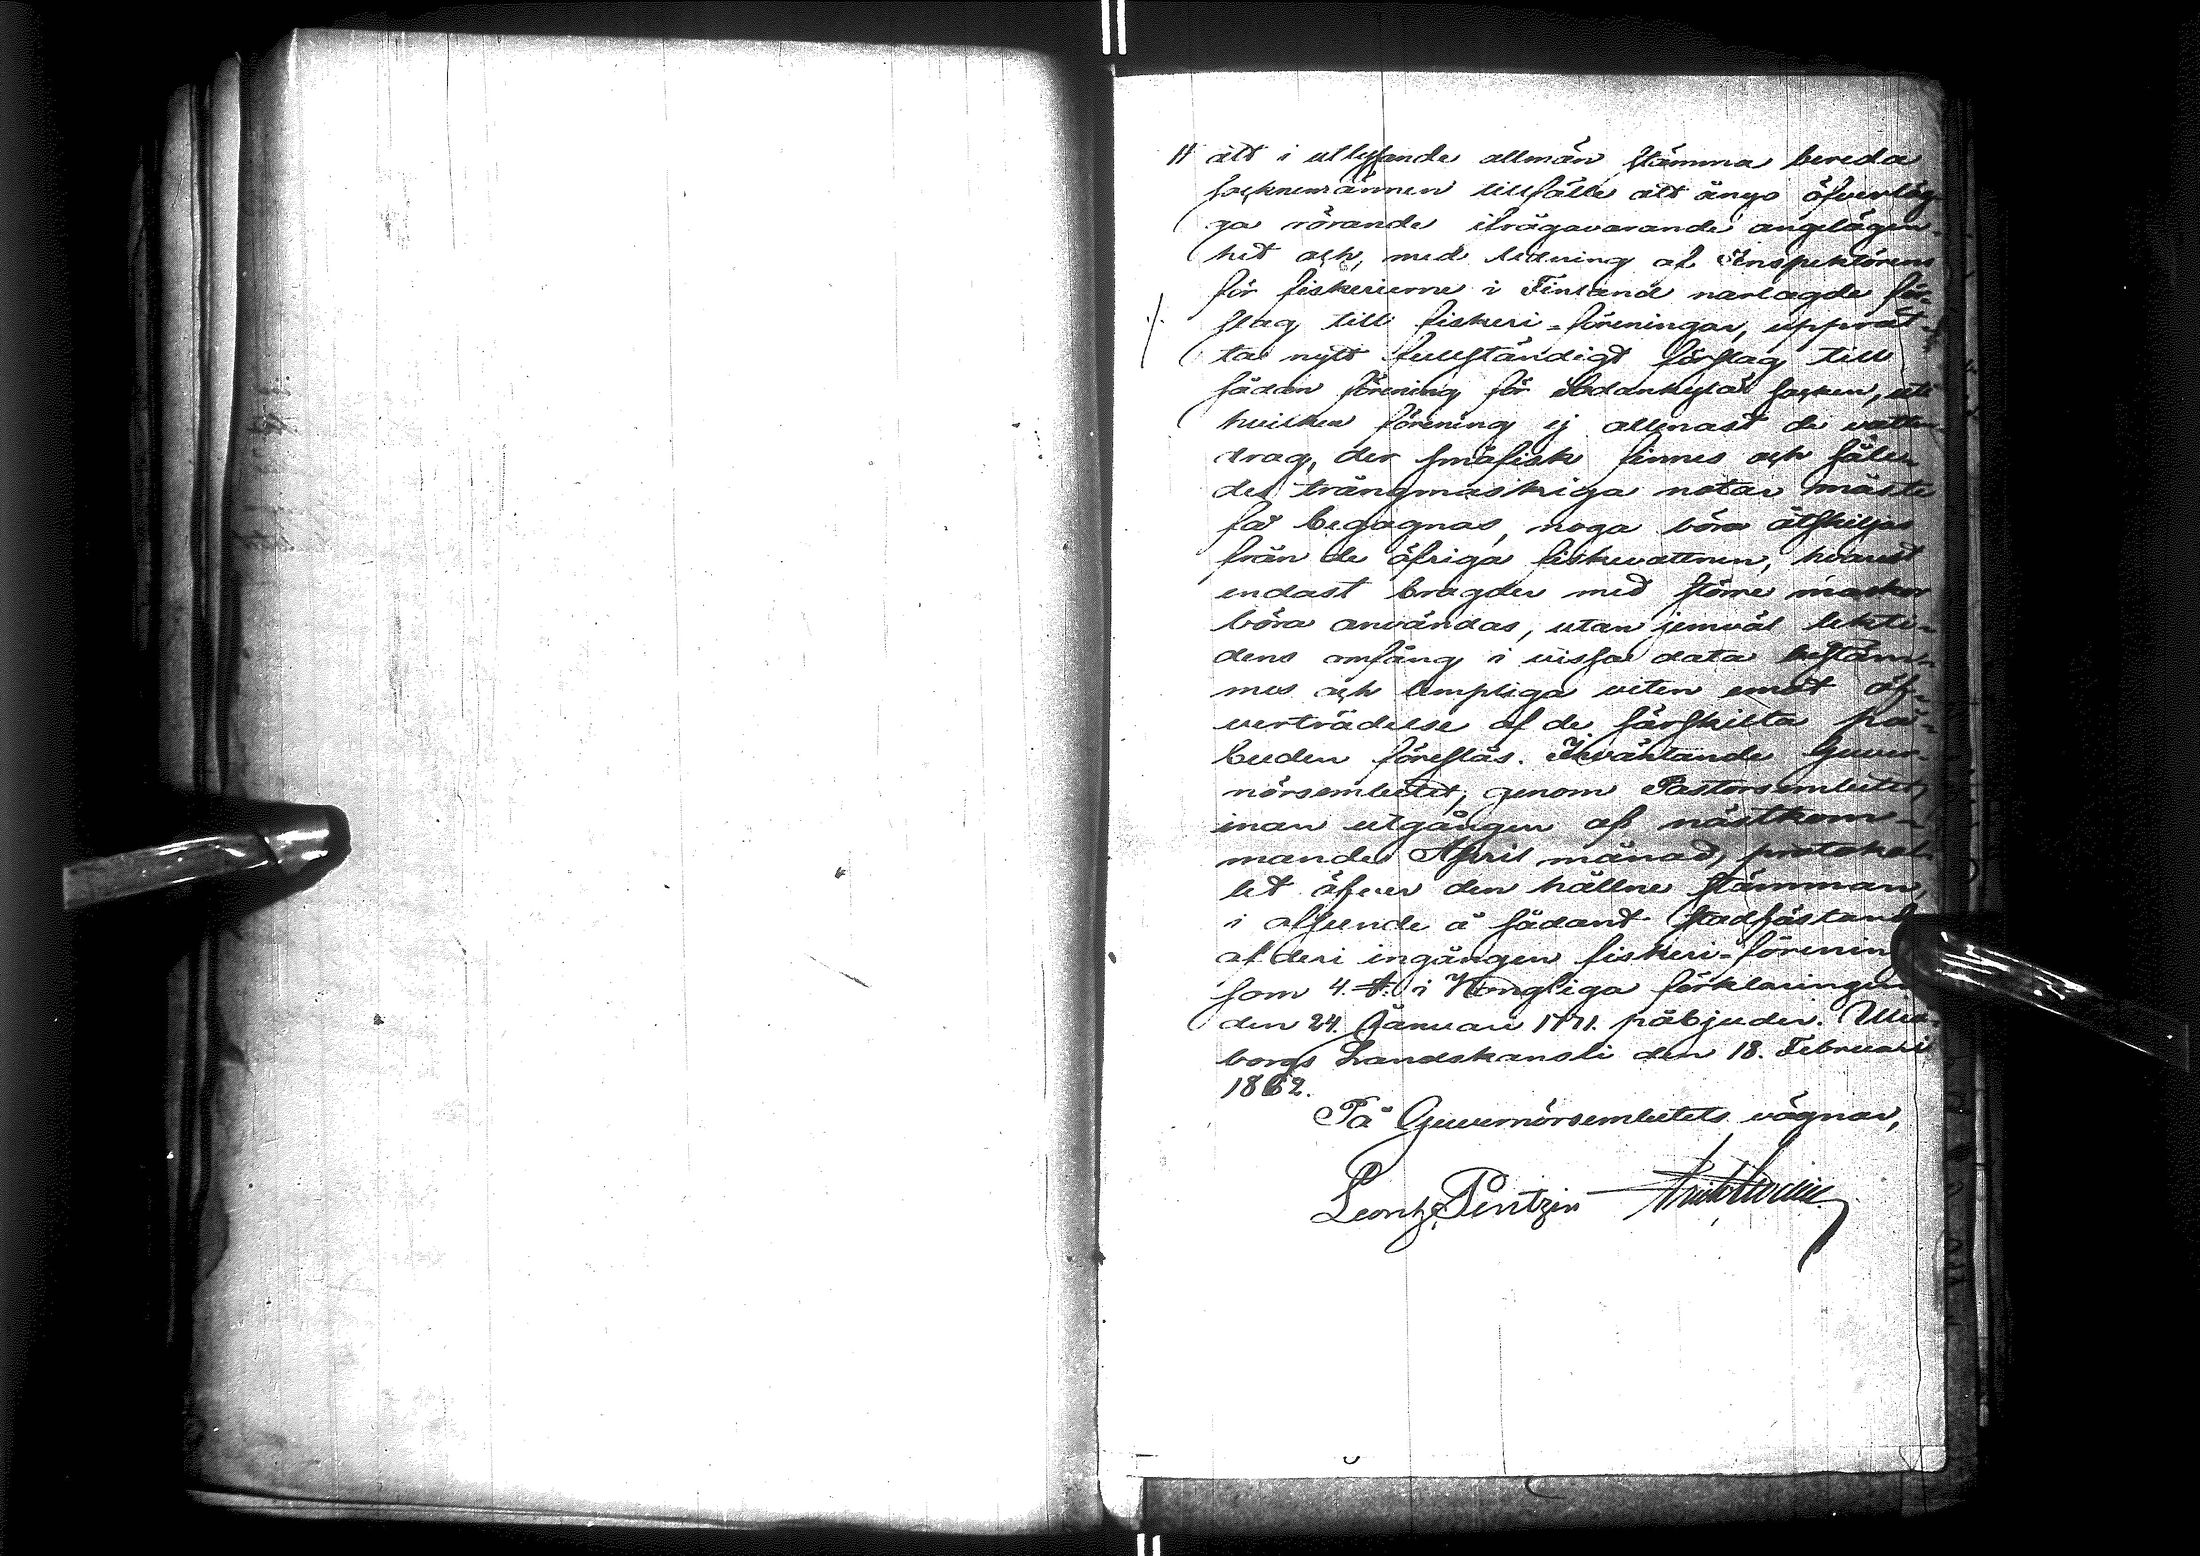 att i utlyssande allmän stämma bereda
socknemännen tillfälle att ånyo öfverläg-
ga rörande ifrågavarande angelägen-
het och, med ledning af Inspektörens
för fiskerierne i Finland narlagde för-
slag till fiskeri-föreningar, upprät-
ta nytt fullständigt förslag till
sådan förening för Sodankylä socken, uti
hvilken förening ej allenast de vatten-
drag, der småfisk finnes och såle-
des trångmaskiga notar måste
få begagnas, noga böra åtskiljas
från de öfriga fiskevattnen, hvarest
endast bragder med större maskor
böra användas, utan jemväl lekti-
dens omfång i vissa data bestäm-
mas och lämpliga viten emot öf-
verträdelse af de särskilta på-
buden föreslås. Kväntande Guver-
nörsembetet, genom Pastorsembetet,
inan utgången af nästkom-
mande April månad, protokol-
let öfver den hållne stämman,
i afseende å sådant stadfästand
af deri ingången fiskeri-förenin
som 4. §. i Kongliga förklaringen
den 24. Januari 1771. påbjuder. Uleå-
borgs Landskansli den 18. Februari
1862.
På Guvernörsembetets vägnar,
Leontz. Pentzin